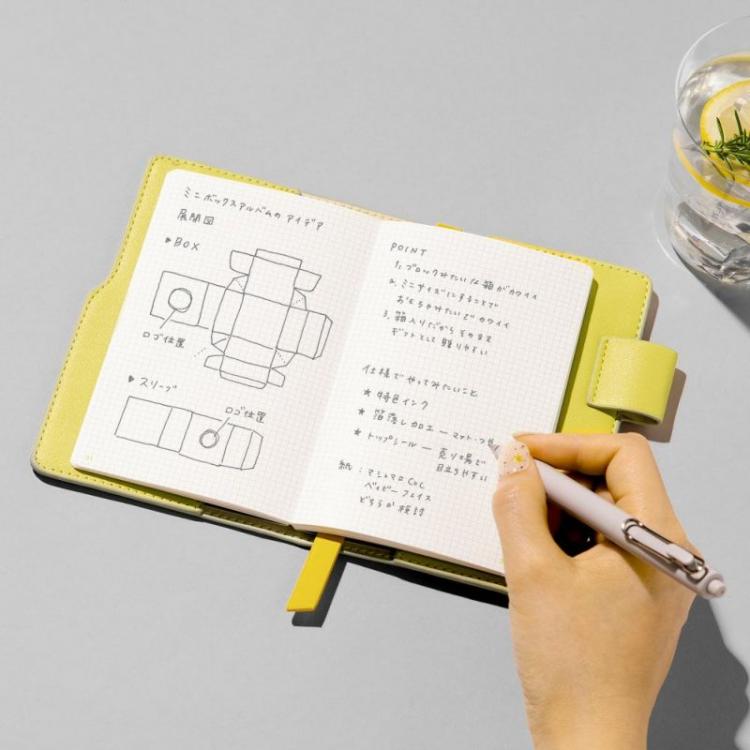 ミニボックスアルバムの アイデア
展開図
▶BOX
ロゴ位置
▶スリーブ
ロゴ位置
POINT
1. ブロックみたいな箱がカワイイ
2. ミニサイズにすることで
おもちゃみたいでカワイイ
3. 箱入りだから そのまま
ギフトとして贈りやすい
仕様でやってみたいこと
★ 特色インク
★ 箔落し加工 ― マット・つや
★ トップシール ― 売り場で
目立ちやすい
紙：マシュマロCoC
ベイビーフェイス
どちらか検討